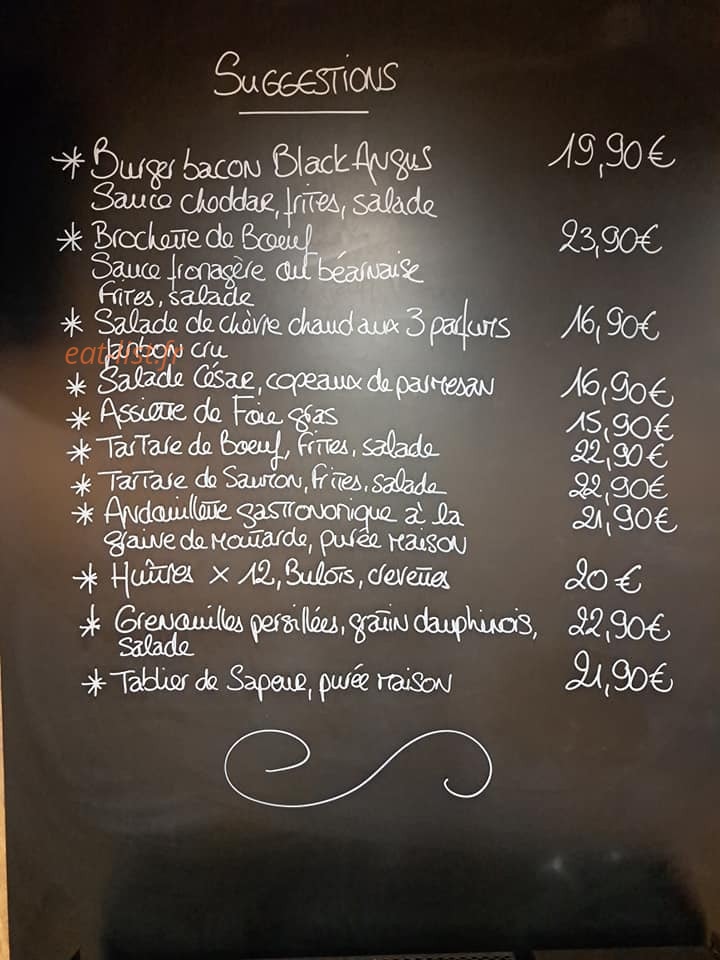 SUGGESTIONS
* Burger bacon Black Angus 19,90€
Sauce cheddar, frites, salade
* Brochette de Boeuf 23,90€
Sauce fromagère ou béarnaise
Frites, salade
* Salade de chèvre chaud aux 3 parfums 16,90€
Jambon cru
eat-list.fr
* Salade César, copeaux de parmesan 16,90€
* Assiette de Foie gras 15,90€
* Tartare de Boeuf, frites, salade 22,90€
* Tartare de Saumon, frites, salade 22,90€
* Andouillette gastronomique à la 21,90€
graine de moutarde, purée maison
* Huîtres x 12, Bulots, crevettes 20€
* Grenouilles persillées, gratin dauphinois, 22,90€
salade
* Tablier de Sapeur, purée maison 21,90€